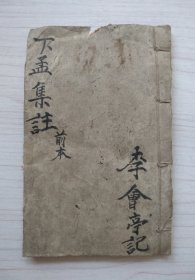 下孟集註
前本
李會亭記